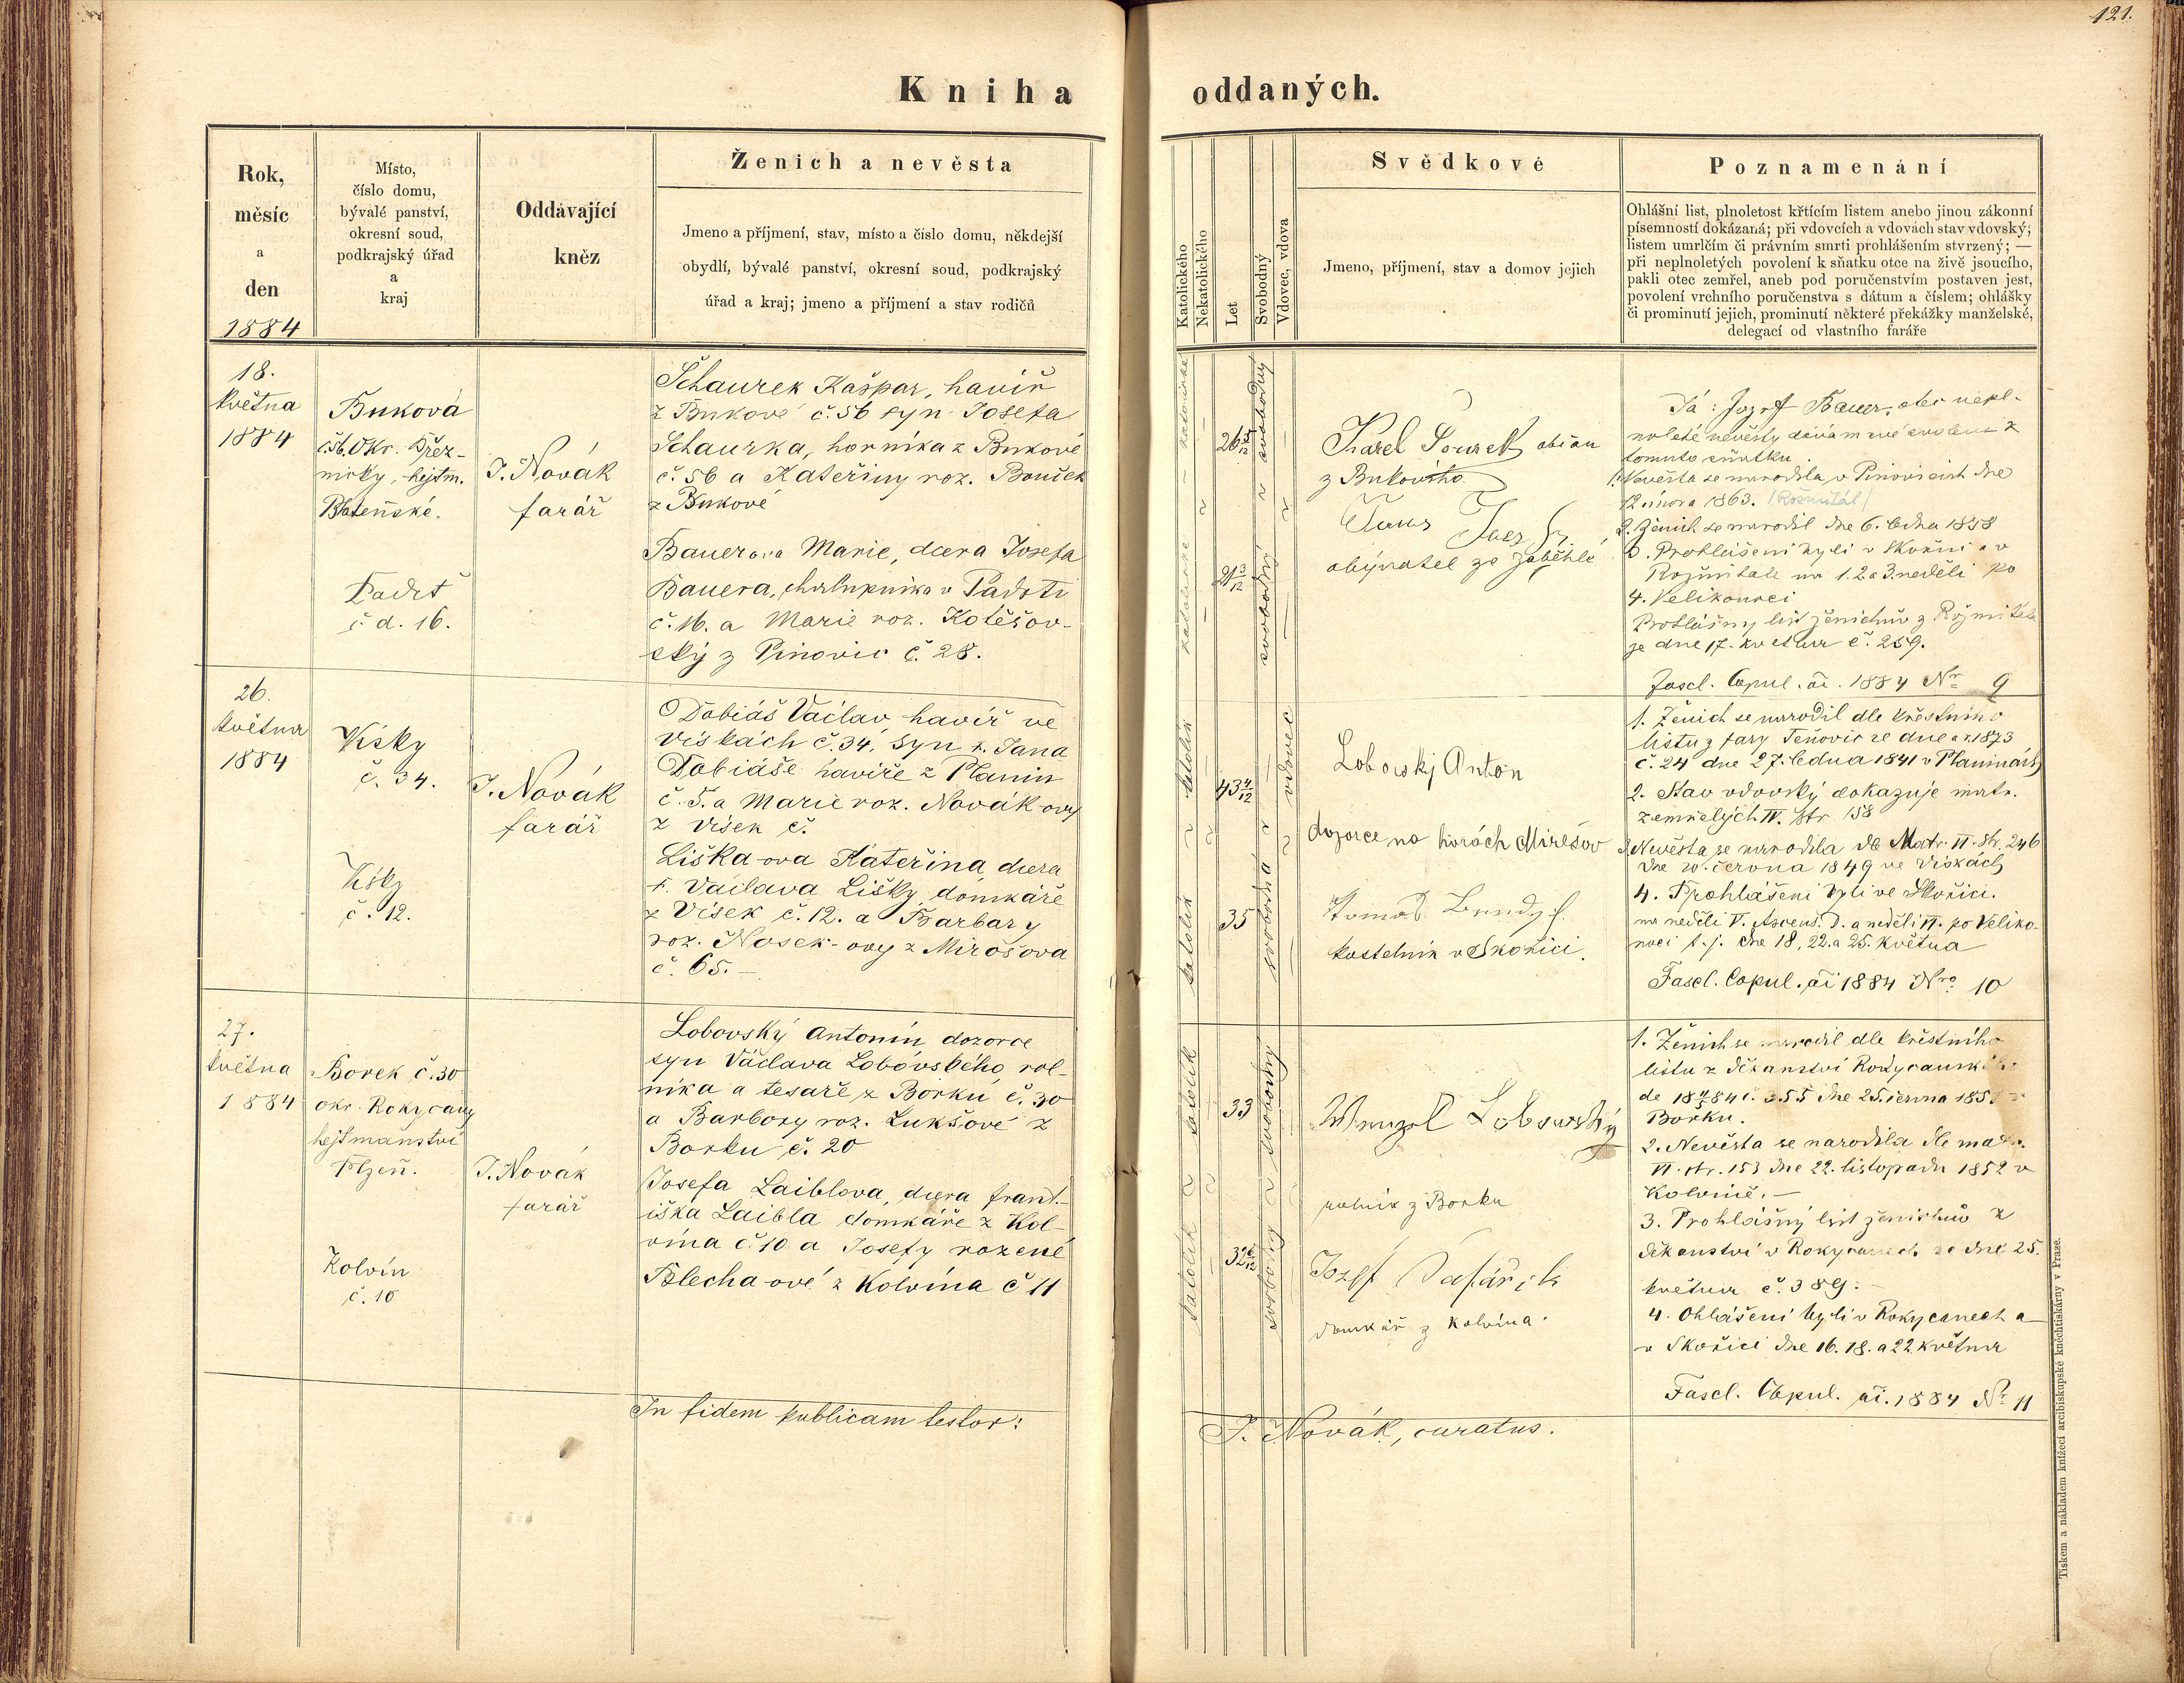 121.
Kniha oddaných.
Rok,
měsíc
a
den
1884
Místo,
číslo domu,
bývalé panství,
okresní soud,
podkrajský úřad
a
kraj
Oddávající
kněz
Ženich a nevěsta
Jmeno a příjmení, stav, místo a číslo domu, někdejší
obydlí, bývalé panství, okresní soud, podkrajský
úřad a kraj; jmeno a příjmení a stav rodičů
Katolického
Nekatolického
Let
Svobodný
Vdovec, vdova
Svědkové
Jmeno, příjmení, stav a domov jejich
Poznamenání
Ohlášní list, plnoletost křtícím listem anebo jinou zákonní
písemností dokázaná; při vdovcích a vdovách stav vdovský;
listem umrlčím či právním smrti prohlášením stvrzený; —
při neplnoletých povolení k sňatku otce na živě jsoucího,
pakli otec zemřel, aneb pod poručenstvím postaven jest,
povolení vrchního poručenstva s dátum a číslem; ohlášky
či prominutí jejich, prominutí některé překážky manželské,
delegací od vlastního faráře
18.
května
1884
Buková
č. 56. Okr. Břez-
nický, hejtm.
Blatenské.
Padrť
č. d. 16.
J. Novák
farář
Schaurek Kašpar, havíř
z Bukové č. 56 syn Josefa
Schaurka, horníka z Bukové
č. 56 a Kateřiny roz. Bouček
z Bukové
Bauerova Marie, dcera Josefa
Bauera, chalupníka v Padrti
č. 16. a Marie roz. Kotěšov-
ský z Pinovic č. 28.
katolické
katolické
26 5/12
21 3/12
svobodný
svobodný
Karel Sourek občan
z Bukového
obývatel ze Zaběhlé
Já: Jozef Bauer, otec nepl-
noleté nevěsty dávám své svolení k
tomuto sňatku.
1. Nevěsta se narodila v Pinovicích dne
12 února 1863. (Rožmitál)
2. Ženich se narodil dne 6. ledna 1858
3. Prohlášeni byli v Skořici a v
Rožmitále na 1. 2 a 3. neděli po
4. Velikonoci
Prohlášný list ženichův z Rožmitála
je dne 17. května č. 259.
Fascl. Copul. ai. 1884 Nr 9
26.
května
1884
Vísky
č. 34.
Vísky
č. 12.
J. Novák
farář
Dobiáš Václav havíř ve
Vískách č. 34, syn †. Jana
Dobiáše havíře z Planin
č. 5. a Marie roz. Novák-ovy
z Vísek č.
Liška-ova Kateřina dcera
†. Václava Lišky, domkáře
z Vísek č. 12. a Barbary
roz. Nosek-ovy z Mirošova
č. 65. —
katolík
katolík
43 4/12
35
vdovec
svobodná
Lobovskj Anton
dozorce na horách Mirešov
Tomáš
kostelník v Skořici.
1. Ženich se narodil dle křestního
listu z fary Těňovic ze dne 1873
č. 24 dne 27. ledna 1841 v Planinách
2. Stav vdovský dokazuje matr.
zemřelých IV. str 158
3. Nevěsta se narodila dle Matr. II. str. 246
dne 20. června 1849 ve Vískách
4. Prohlášeni byli ve Skořici.
na neděli V. Ascens. D. a neděli VI. po Veliko-
noci t. j. dne 18, 22. a 25. května
Fascl. Copul. ai 1884 Nro 10
27.
května
1884
Borek č. 30
okr. Rokycany
hejtmanství
Plzeň.
Kolvín
č. 10
J. Novák
farář
Lobovský Antonín dozorce
syn Václava Lobovského, rol-
níka a tesaře z Borku č. 30
a Barbory roz. Lukšové z
Borku č. 20
Josefa Laiblova, dcera Frant-
iška Laibla domkáře z Kol-
vína č. 10 a Josefy rozené
Blecha-ové z Kolvína č 11
katolík
katolík
33
32 6/12
svobodný
Wenzel Lobowský
rolník z Borku
Jozef Šafářik
domkář z Kolvína.
1. Ženich se narodil dle křestního
listu z děkanství Rokycanského
č. 355 dne 25. června 1851 v
Borku.
2. Nevěsta se narodila dle matr.
VI. str. 153 dne 22. listopadu 1852 v
Kolvíně. —
3. Prohlášný list ženichův z
děkanství v Rokycanech ze dne 25.
května č. 389. —
4. Ohlášeni byli v Rokycanech a
v Skořici dne 16. 18. a 22 května
Fascl. Copul. ai. 1884 Nr 11
In fidem publicam testor:
J. Novák, curatus.
Tiskem a nákladem knížecí arcibiskupské kněhtiskárny v Praze.